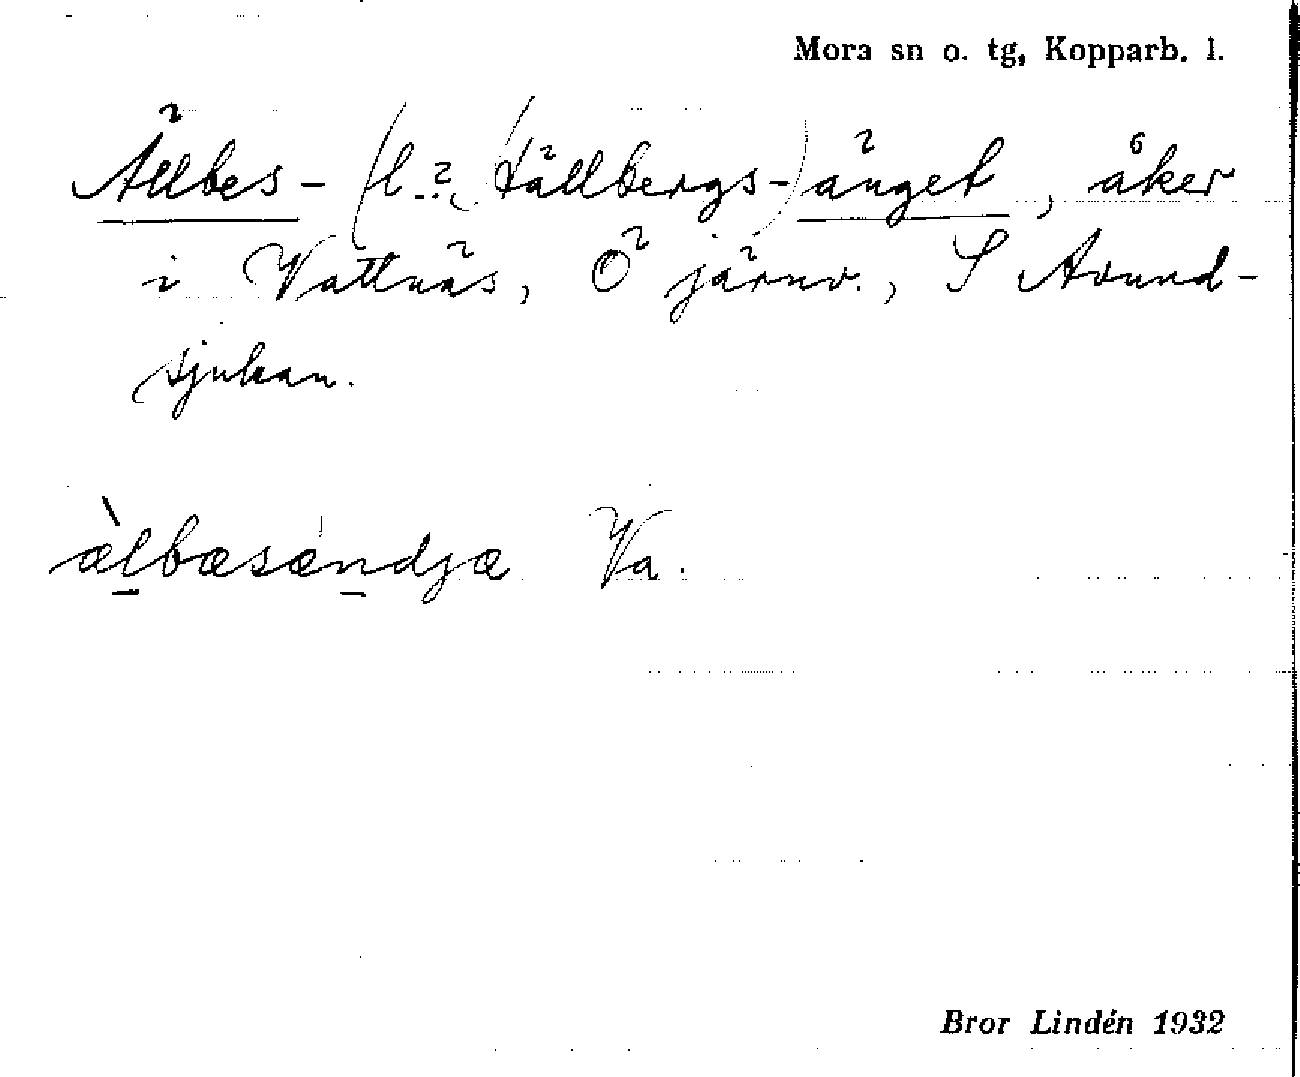 Mora sn o. tg, Kopparb. l.
Ällbes- (l. ?, Hällbergs-) änget, åker
i Vattnäs, Ö järnv., S Avund-
sjukan.
ælbæsændjæ Va.
Bror Lindén 1932